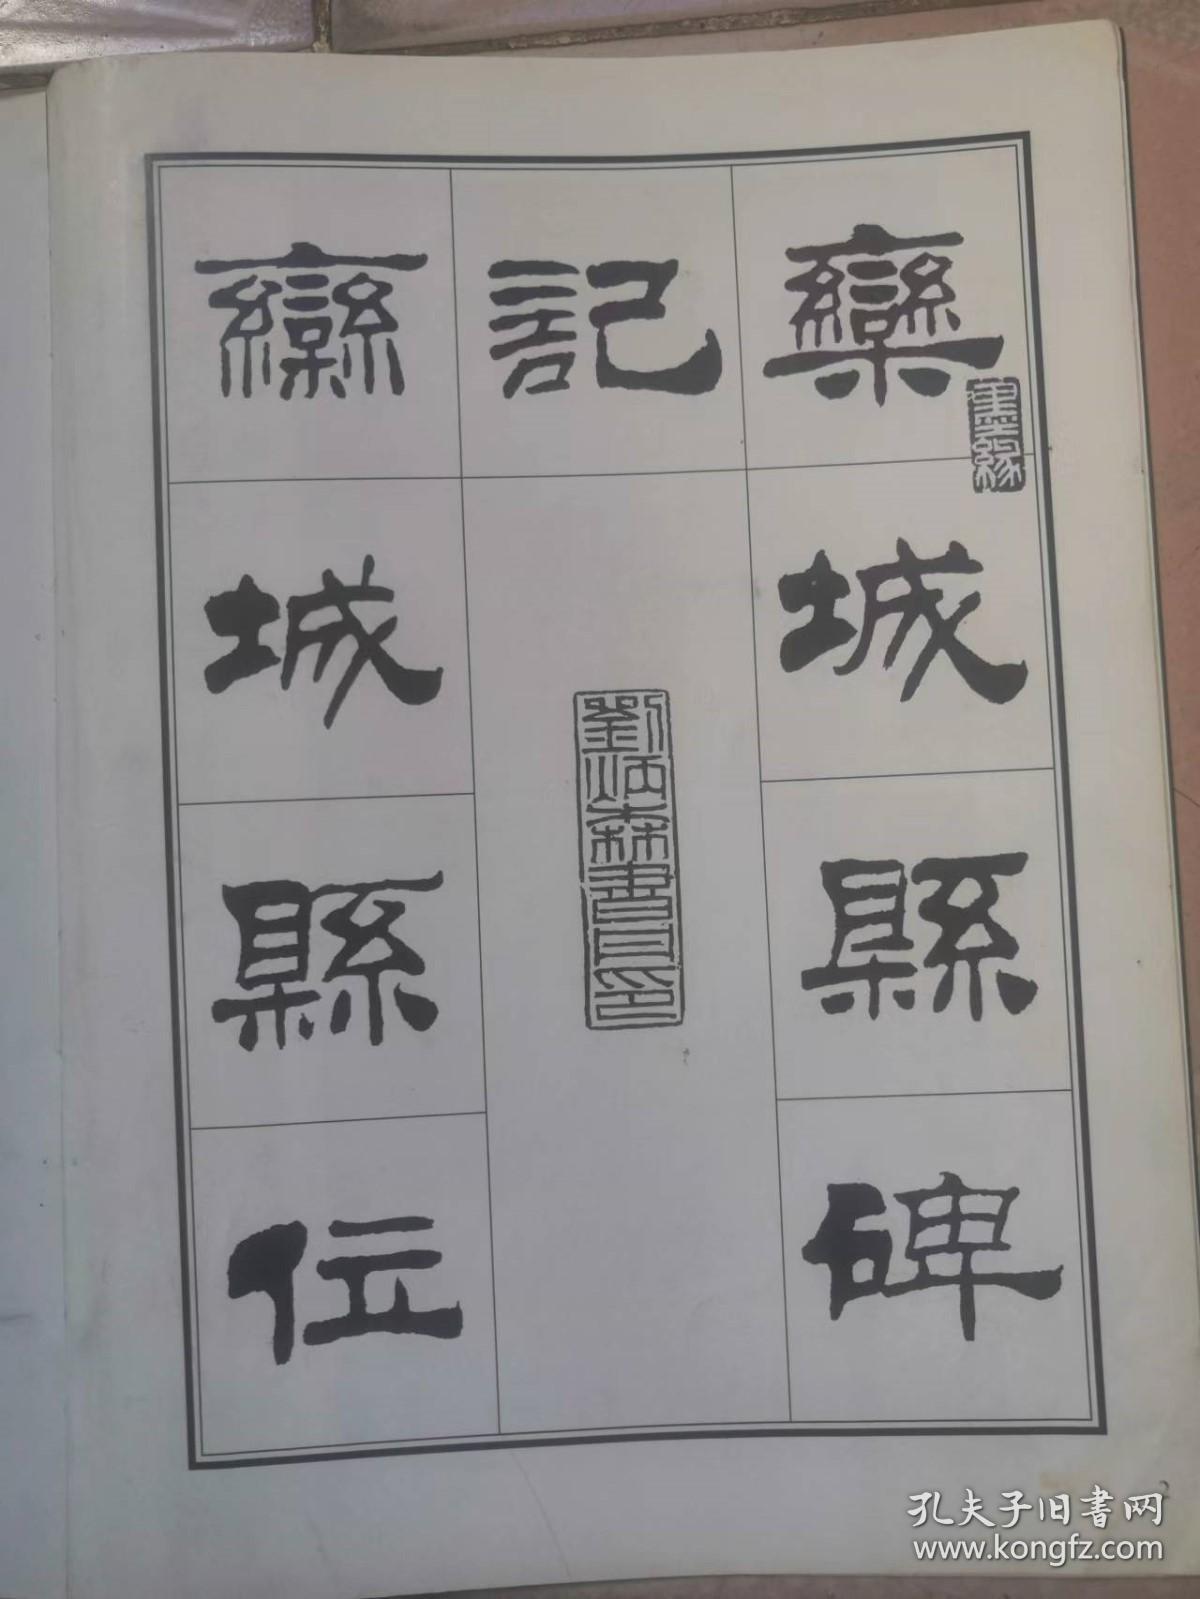 欒城縣碑
墨緣
記
劉炳森書画印
欒城縣位
2
孔夫子旧书网
www.kongfz.com